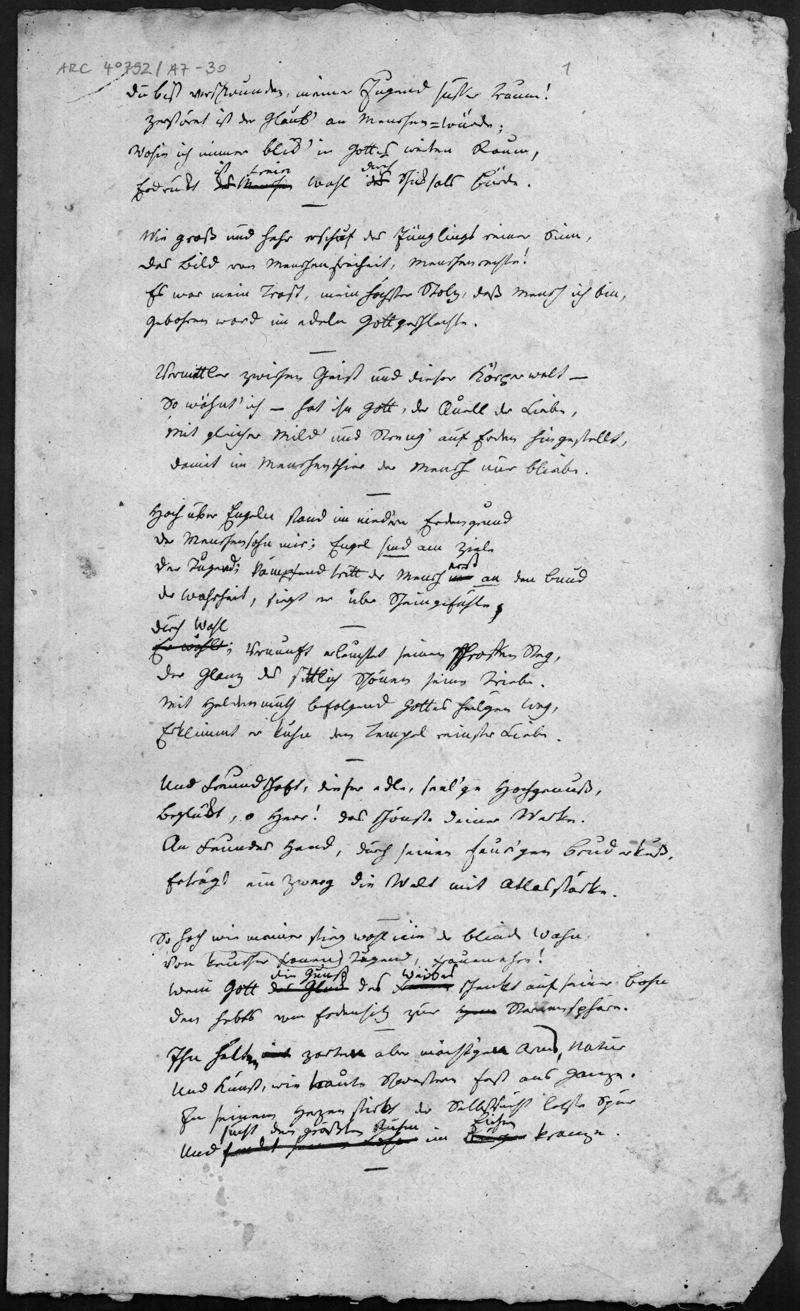 ARC 4°792/A7-30
1
Du bist verschwunden, meiner Jugend süßer Traum!
Zerstöret ist der Glaub' an Menschen=würde;
Wohin ich immer blick' in Gottes weiten Raum,
ist keiner durch
Erdrükt des Menschen Wohl des Schiksals Bürde.
Wie groß und hehr erschuf des Jünglings reiner Sinn,
Das Bild von Menschenfreiheit, Menschenrechte!
Es war mein Trost, mein höchster Stolz, daß Mensch ich bin,
gebohren ward im edeln Gottgeschlechte.
Vermittler zwischen Geist und dieser Körperwelt —
So wähnt' ich — hat ihn Gott, der Quell der Liebe,
Mit gleicher Mild' und Streng' auf Erden hingestellt,
damit im Menschenthier der Mensch nur bliebe.
Hoch über Engeln stand im niedern Erdengrund
der Menschensohn mir; Engel sind am Ziele
erst
Der Tugend; kämpfend tritt der Mensch nur an den Bund
der Wahrheit, siegt er über Scheingefühle,
durch Wahl
Er wählt; Vernunft erleuchtet seinen schroffen Steg,
der Glanz des sittlich Schönen seine Triebe.
Mit Heldenmuth befolgend Gottes heil'gen Weg,
Erklimmt er kühn den Tempel reinster Liebe.
Und Freundschaft, dieser edle, seel'ge Hochgenuß,
Beglükt, o Herr! das schönste deiner Werke.
An Freundes Hand, durch seinen feur'gen Bruderkuß,
Erträgt ein Zwerg die Welt mit Atlasstärke.
So hoch wie meiner stieg wohl nie der blinde Wahn
Von keuscher Frauen Tugend, Frauenehre!
die Gunst Weibes
Wem Gott des des schenkt auf seiner Bahn
den hebts vom Erdensitz zur Sternensphäre.
Ihn halten mit zarten aber mächtigen Arm, Natur
Und Kunst, wie traute Schwestern fest ans Ganze.
In seinem Herzen stirbt der Selbstsucht letzte Spur
sucht den größten Ruhm Eichen
Und findet im Bürger Kranze.